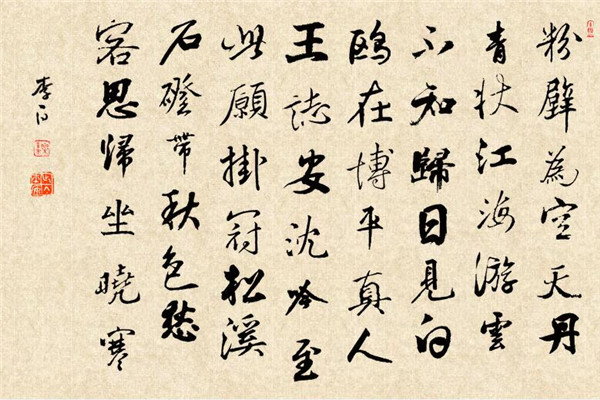 粉壁為空天丹
青狀江海游雲
不知歸日見白
鷗在博平真人
王誌安沈吟至
此願掛冠松溪
石磴帶秋色愁
客思歸坐曉寒
李白